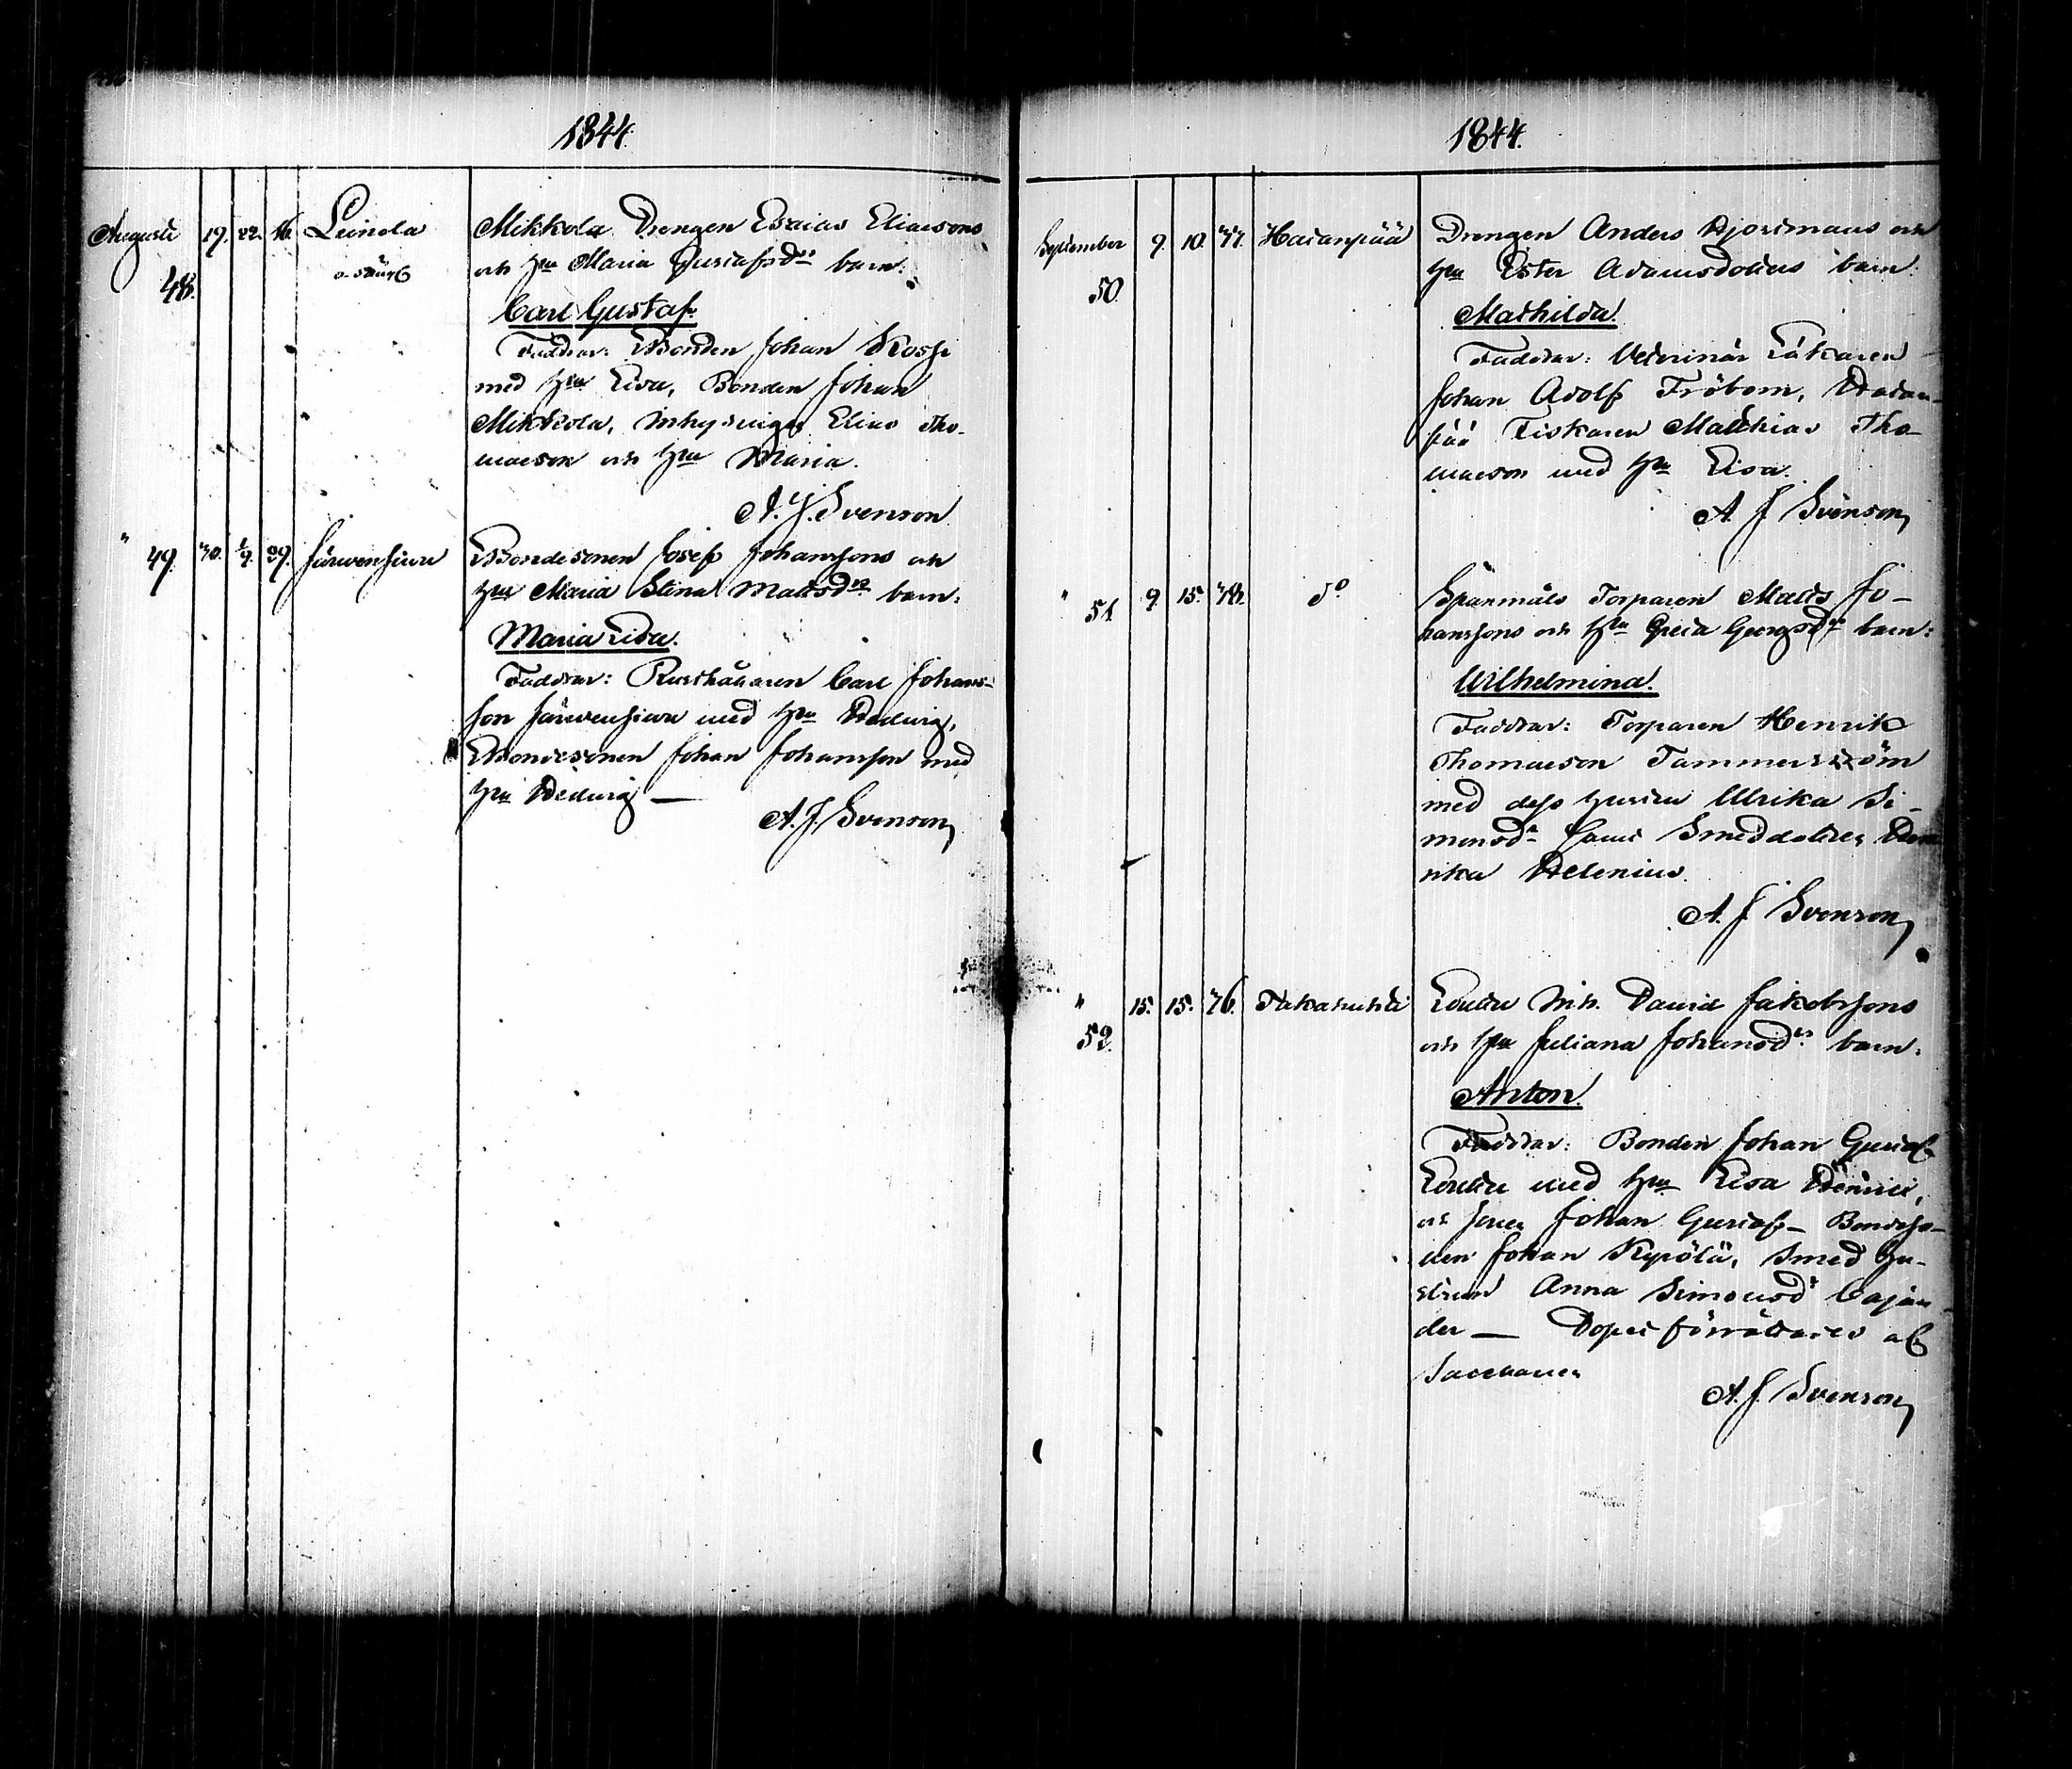 1844.
Augusti 19. 22. 16. Leinola Mikkola Drengen Esaias Eliaesons
48. och hu Maria Gustafsdrs barn:
Carl Gustaf.
Faddrar: Bonden Johan Kossi
med hu Lisa, Bonden Johan
Mikkola, Inhysinges Elias Tho-
maeson och hu Maria.
A. J. Svenson
" 49. 30. 1/9. 29. Järwensiwu Bondesonen Josef Johanssons och
hu Maria Stina Mattsdrs barn:
Maria Lisa.
Faddrar: Rusthållaren Carl Johans-
son Järwensiwu med hu Hedwig,
Bondesonen Johan Johansson med
hu Hedwig —
A. J. Svenson
1844.
September 9. 10. 37. Hatanpää Drengen Anders Björkmans och
50. hu Ester Adamsdotters barn:
Mathilda.
Faddrar: Veterinär Läkaren
Johan Adolf Fröbom, Hatan-
pää Fiskaren Matthias Tho-
maeson med hu Lisa.
A. J. Svenson
" 51. 9. 15. 38. do Spånmäls Torparen Matts Jo-
hanssons och hu Greta Georgsdrs barn:
Wilhelmina.
Faddrar: Torparen Henrik
Thomaeson Tammerström
med dess hustru Ulrika Si-
monsdr Samt Smeddotter
rika Helenius.
A. J. Svenson
" 15. 15. 36. Takahuhti Inh. David Jakobssons
52. och hu Juliana Johansdrs barn:
Anton.
Faddrar: Bonden Johan Gustaf
med hu Lisa
och Johan Gustaf – Bondeso-
nen Johan Kyrölä, Smed hu-
strun Anna Simonsdr Cajan-
der — Dopet förrättades af

A. J. Svenson